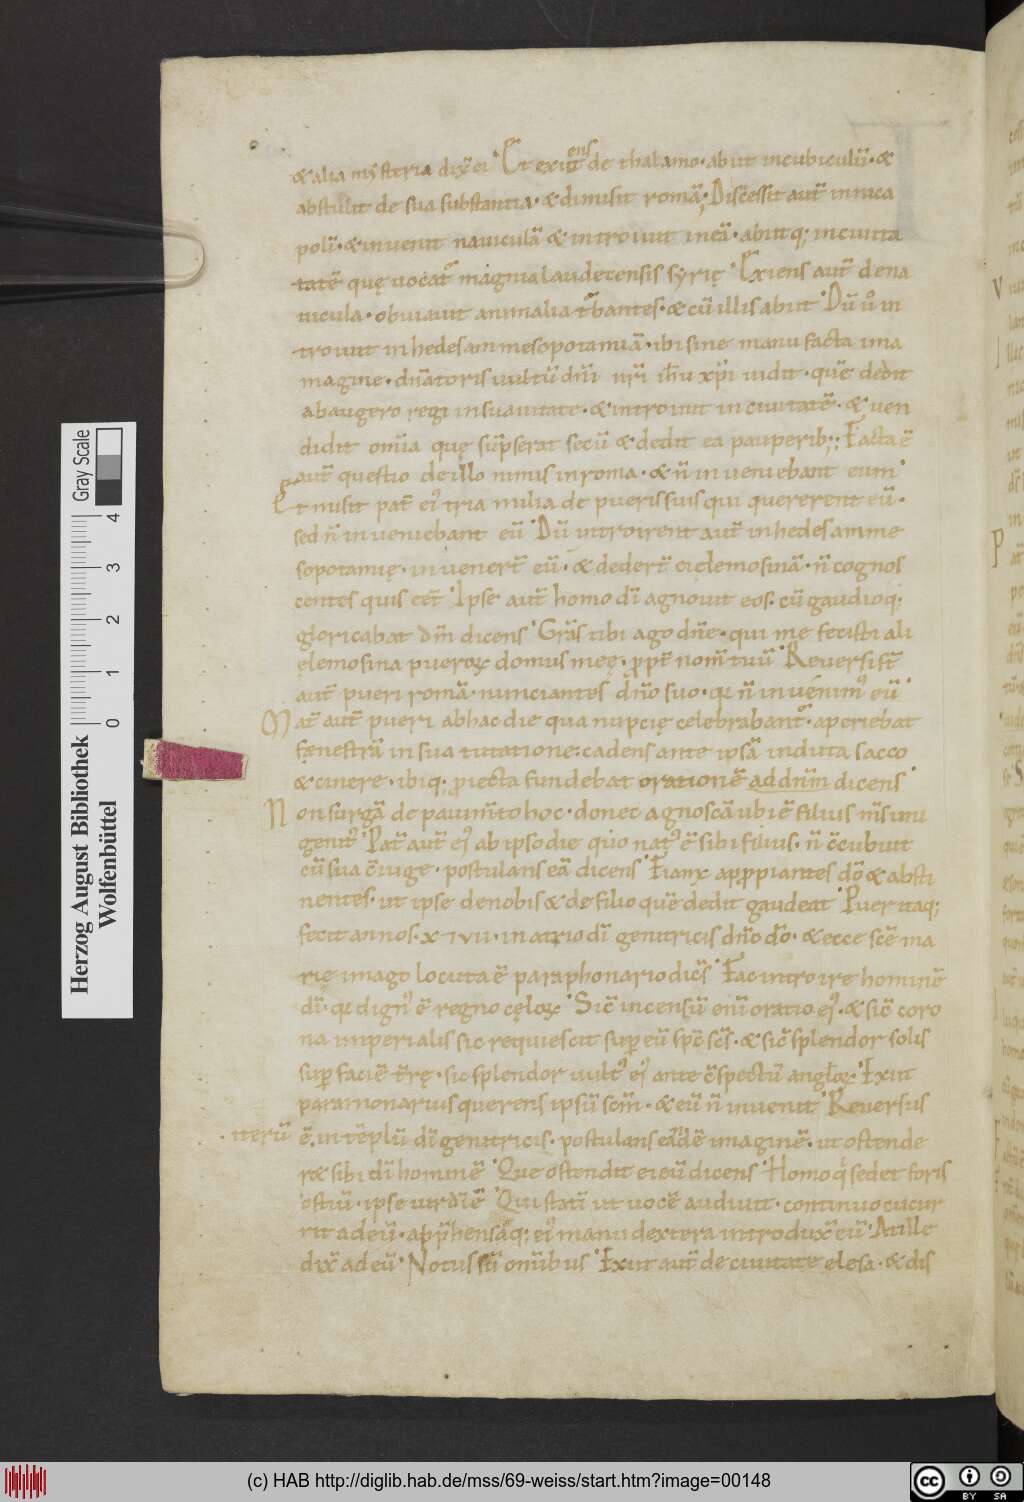 & alia mysteria dix̄ ei. Et exiens de thalamo. abiit in cubiculū. &
abstulit de sua substantia. & dimisit romā. Discessit aut̄ in nica
poli. & invenit naviculā & introivit in eā. abiitq; in civita
tatē quę vocat᷑ magnia laudecensis syrię. Exiens aut̄ de na
vicula. obviavit animalia t᷑bantes. & cū illis abiit. Dū v̊ in
troivit in hedesam mesopotamiā. ibi sine manu facta ima
magine. dn̄atoris vultū dn̄i nr̄i ih̄u xp̄i vidit. quē dedit
abaugero regi in sua civitate. & introivit in civitatē. & ven
didit om̄ia quę sup̄serat secū & dedit ea pauperib;; Facta ē
aut̄ questio de illo nimis in roma. & n̄ inveniebant eum.
Et misit pat̄ ei᷒ tria milia de pueris suis qui quererent eū.
sed n̄ inveniebant eū. Dū introirent aut̄ in hedesam me
sopotamię. invener̄t eū. & deder̄t ei elemosinā. n̄ cognos
centes quis eēt. Ipse aut̄ homo dī agnovit eos. cū gaudioq;
gloricabat dm̄ dicens. Grās tibi ago dn̄e. qui me fecisti ali
ęlemosina pueroꝝ domus meę. ꝓpt̄ nom̄ tuū. Reversi st̄
aut̄ pueri romā. nunciantes dn̄o suo. qꝛ n̄ invenim᷒ eū.
Mat̄ aut̄ pueri ab hac die qua nupcię celebrabant᷑. aperiebat
fęnestrā in sua tutatione. cadens ante ipsā induta sacco
& cinere. ibiq; ꝓiecta fundebat orationē ad dn̄m dicens.
Non surgā de pavim̄to hoc. donec agnoscā ubi ē filius m̄s uni
genit᷒. Pat̄ aut̄ ei᷒ ab ipso die quo nat᷒ ē sibi filius. n̄ c̄cubuit
cū sua c̄iuge. postulans eā dicens. Fianx appropiantes dō & absti
nentes. ut ipse de nobis & de filio quē dedit gaudeat. Puer itaq;
fecit annos. x & vii. in atrio dī genitricis dn̄o dō. & ecce scē ma
rię imago locuta ē paraphonario dic̄s. Fac introire hominē
dī. qꝛ dign᷒ ē regno cęloꝝ. Sic̄ incensū enī oratio ei᷒. & sic̄ coro
na imperialis sic requiescit sup̄ eū sp̄c sc̄s. & sic̄ splendor solis
sup̄ faciē t̄rę. sic splendor vult᷒ ei᷒ ante c̄spectū angl̄oꝝ. Exiit
paramonarius querens ipsū scm̄. & eū n̄ invenit. Reversus
. iterū ē. in tēplū dī genitricis. postulans eādē imaginē. ut ostende
r& sibi dī hominē. Que ostendit ei eū dicens. Homo q̄ sedet foris
ostiū. ipse vir dī ē. Qui statī ut vocē audivit. continuo cucur
rit ad eū. app̄hensāq; ei᷒ manu dextera introdux̄ eū. At ille
dix̄ ad eū. Notus sū omībus. Exiit aut̄ de civitate elesa. & dis
Herzog August Bibliothek
Wolfenbüttel
0 1 2 3 4
Gray Scale
(c) HAB http://diglib.hab.de/mss/69-weiss/start.htm?image=00148
cc
BY SA